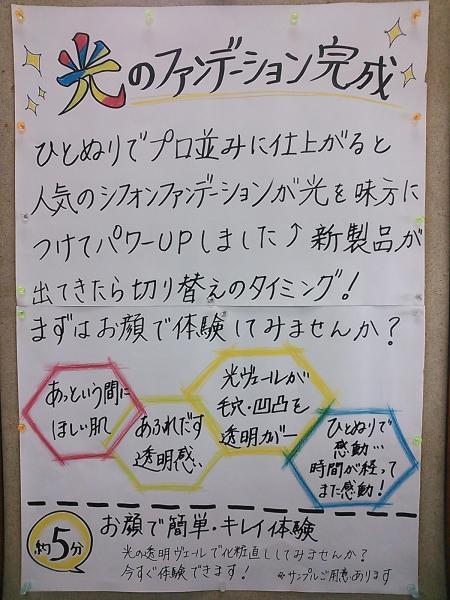 光のファンデーション完成
ひとぬりでプロ並みに仕上がると
人気のシフォンファンデーションが光を味方に
つけてパワーUPしました⤴新製品が
出てきたら切り替えのタイミング!
まずはお顔で体験してみませんか?
あっという間に
ほしい肌
あふれだす
透明感〟
光ヴェールが
毛穴・凹凸を
透明カバー
ひとぬりで
感動…
時間が経って
また感動!
約5分
お顔で簡単・キレイ体験
光の透明ヴェールで化粧直ししてみませんか?
今すぐ体験できます!
※サンプルご用意あります